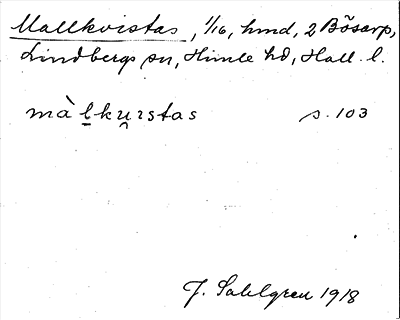 Mallkvistas, 1/16, hmd, 2 Bösarp,
Lindbergs sn, Himle hd, Hall. l.
màl̲ku̯ıstas s. 103
J. Sahlgren 1918